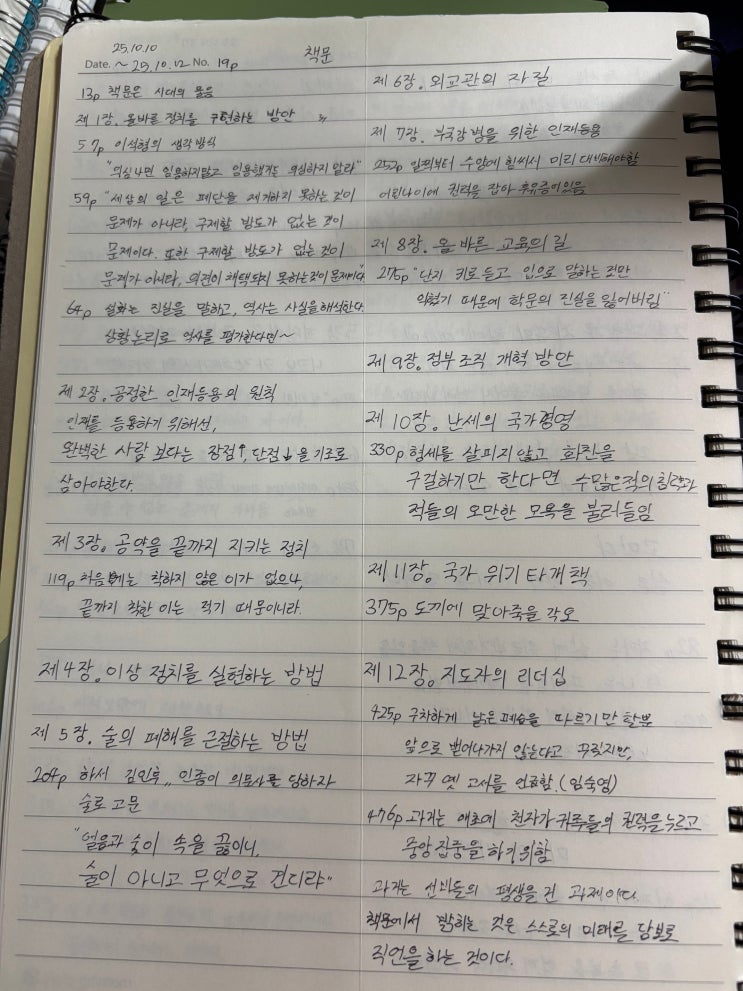 25.10.10
Date. ~25.10.12 No. 19p 책문
13p 책문은 시대의 물음
제 1장. 올바른 정치를 구현하는 방안
57p 이석형의 생각방식
"의심나면 임용하지말고 임용했거든 의심하지 말라"
59p "세상의 일은 폐단을 제거하지 못하는 것이
문제가 아니라, 구제할 방도가 없는 것이
문제이다. 또한 구제할 방도가 없는 것이
문제가 아니라, 의견이 채택되지 못하는것이 문제이다"
64p 설화는 진실을 말하고, 역사는 사실을 해석한다.
상황논리로 역사를 평가한다면~
제 2장. 공정한 인재등용의 원칙
인재를 등용하기 위해선,
완벽한 사람 보다는 장점↑, 단점↓을 기조로
삼아야한다.
제 3장. 공약을 끝까지 지키는 정치
119p 처음에는 착하지 않은 이가 없으나,
끝까지 착한 이는 적기 때문이니라.
제 4장. 이상 정치를 실현하는 방법
제 5장. 술의 폐해를 근절하는 방법
204p 하서 김인후,, 인종이 의문사를 당하자
술로 고문
"얼음과 숯이 속을 끓이니,
술이 아니고 무엇으로 견디랴"
제 6장. 외교관의 자질
제 7장. 부국강병을 위한 인재등용
252p 일찍부터 수양에 힘써서 미리 대비해야함
어린나이에 권력을 잡아 후유증이있음
제 8장. 올바른 교육의 길
275p "단지 귀로듣고 입으로 말하는 것만
익혔기 때문에 학문의 진실을 잃어버림"
제 9장. 정부 조직 개혁 방안
제 10장. 난세의 국가경영
330p 형세를 살피지 않고 화친을
구걸하기만 한다면 수많은적의 침략과
적들의 오만한 모욕을 불러들임
제 11장. 국가 위기 타개책
375p 도끼에 맞아죽을 각오
제 12장. 지도자의 리더십
425p 구차하게 낡은폐습을 따르기만 할뿐
앞으로 뻗어나가지 않는다고 꾸짖지만,
자꾸 옛 고서를 언급함. (임숙영)
476p 과거는 애초에 천자가 귀족들의 권력을누르고
중앙집중을 하기 위함
과거는 선비들의 평생을 건 과제이다.
책문에서 밝히는 것은 스스로의 미래를 담보로
직언을 하는 것이다.